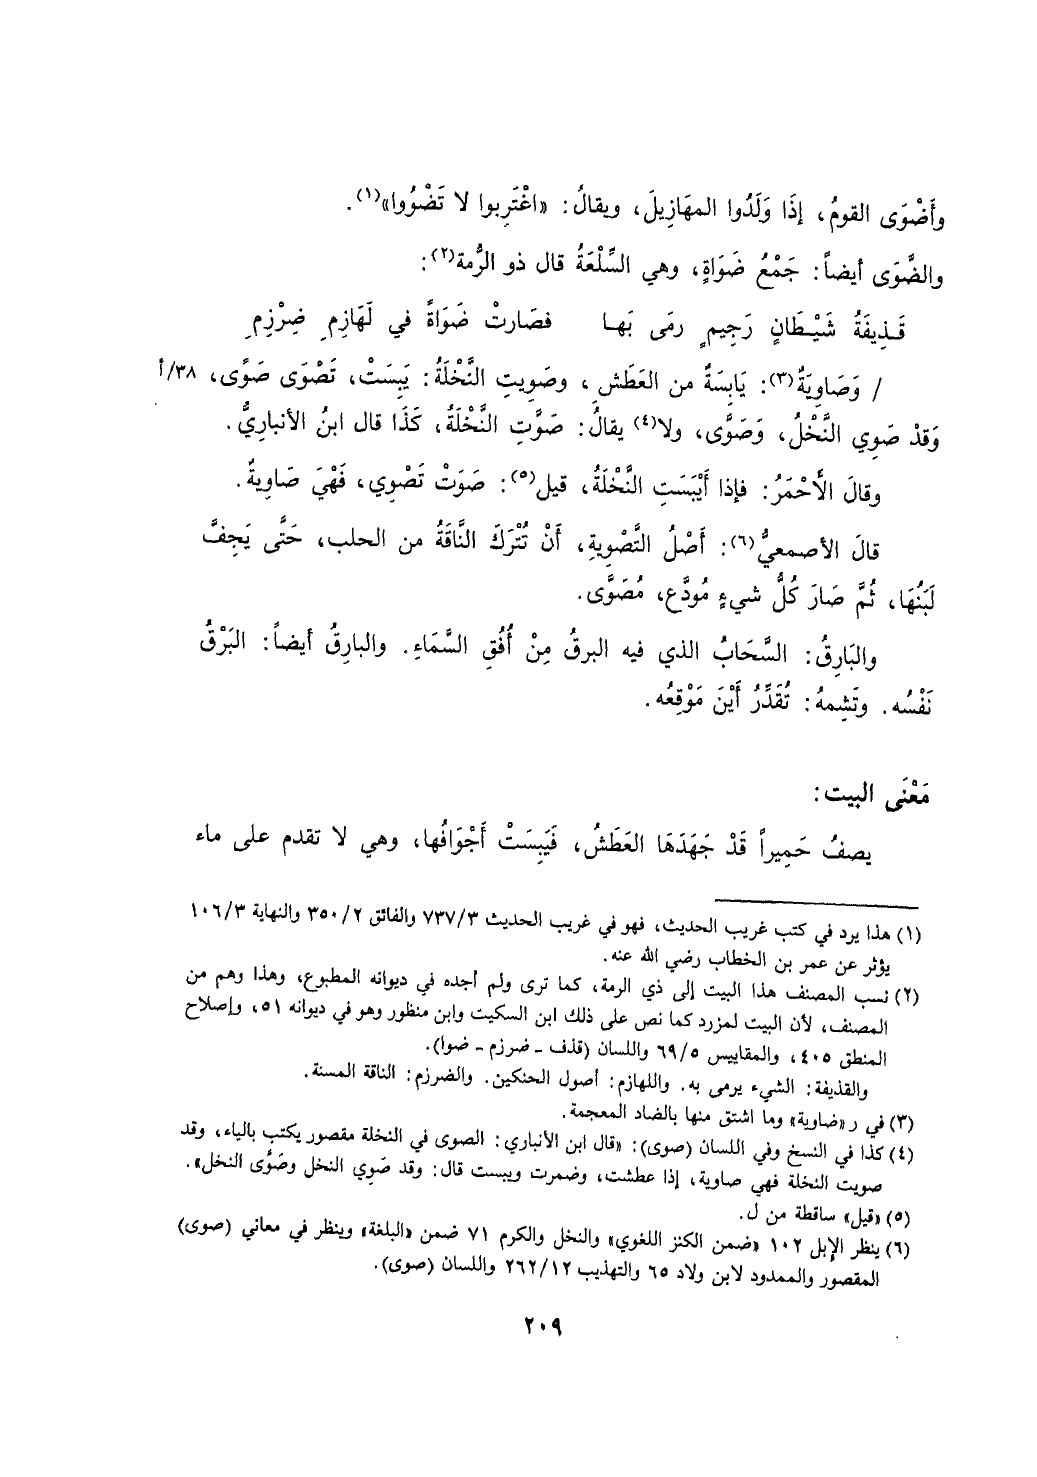 وأَضْوَى القومُ، إذَا وَلَدُوا المهَازِيلَ، ويقالُ: «اغْتَرِبوا لا تَضْوُوا»(١).
والضَّوَى أيضاً: جَمْعُ ضَوَاةٍ، وهي السِّلْعَةُ قال ذو الرُّمة(٢):
قَـذِيفَةُ شَيْـطَانٍ رَجِيمٍ رمَى بَهـا    فصَارتْ ضَوَاةً في لَهَازِمِ ضِرْزِمِ
/ وَصَاوِيَةٌ(٣): يَابِسَةٌ من العَطَشِ، وصَوِيتِ النَّخْلَةُ: يَبِسَتْ، تَصْوَى صَوًى، ٣٨/أ
وَقدْ صَوِي النَّخْلُ، وَصَوَّى، ولا(٤) يقالُ: صَوَّتِ النَّخْلَةُ، كَذَا قال ابنُ الأنباريُّ.
وقالَ الأَحْمَرُ: فإذا أَيْبَسَتِ النَّخْلَةُ، قيل(٥): صَوَتْ تَصْوِي، فَهْيَ صَاوِيةٌ.
قالَ الأصمعيُّ(٦): أَصْلُ التَّصْوِيةِ، أَنْ تُتْرَكَ النَّاقَةُ من الحلب، حَتَّى يَجِفَّ
لَبَنُهَا، ثُمَّ صَارَ كُلُّ شيءٍ مُودَّعٍ، مُصَوَّى.
والبَارِقُ: السَّحَابُ الذي فيه البرقُ مِنْ أُفُقِ السَّمَاءِ. والبارِقُ أيضاً: البَرْقُ
نَفْسُه. وتَشِمهُ: تُقَدِّرُ أَيْنَ مَوْقِعُه.
مَعْنَى البيت:
يصفُ حَمِيراً قَدْ جَهَدَهَا العَطَشُ، فَيَبِسَتْ أَجْوَافُها، وهي لا تقدم على ماء
(١) هذا يرد في كتب غريب الحديث، فهو في غريب الحديث ٧٣٧/٣ والفائق ٣٥٠/٢ والنهاية ١٠٦/٣
يؤثر عن عمر بن الخطاب رضي الله عنه.
(٢) نسب المصنف هذا البيت إلى ذي الرمة، كما ترى ولم أجده في ديوانه المطبوع، وهذا وهم من
المصنف، لأن البيت لمزرد كما نص على ذلك ابن السكيت وابن منظور وهو في ديوانه ٥١، وإصلاح
المنطق ٤٠٥، والمقاييس ٦٩/٥ واللسان (قذف ـ ضرزم ـ ضوا).
والقذيفة: الشيء يرمى به. واللهازم: أصول الحنكين. والضرزم: الناقة المسنة.
(٣) في ر «ضاوية» وما اشتق منها بالضاد المعجمة.
(٤) كذا في النسخ وفي اللسان (صوى): «قال ابن الأنباري: الصوى في النخلة مقصور يكتب بالياء، وقد
صويت النخلة فهي صاوية، إذا عطشت، وضمرت ويبست قال: وقد صَوِي النخل وصَوَّى النخل».
(٥) «قيل» ساقطة من ل.
(٦) ينظر الإبل ١٠٢ «ضمن الكنز اللغوي» والنخل والكرم ٧١ ضمن «البلغة» وينظر في معاني (صوى)
المقصور والممدود لابن ولاد ٦٥ والتهذيب ٢٦٢/١٢ واللسان (صوى).
٢٠٩